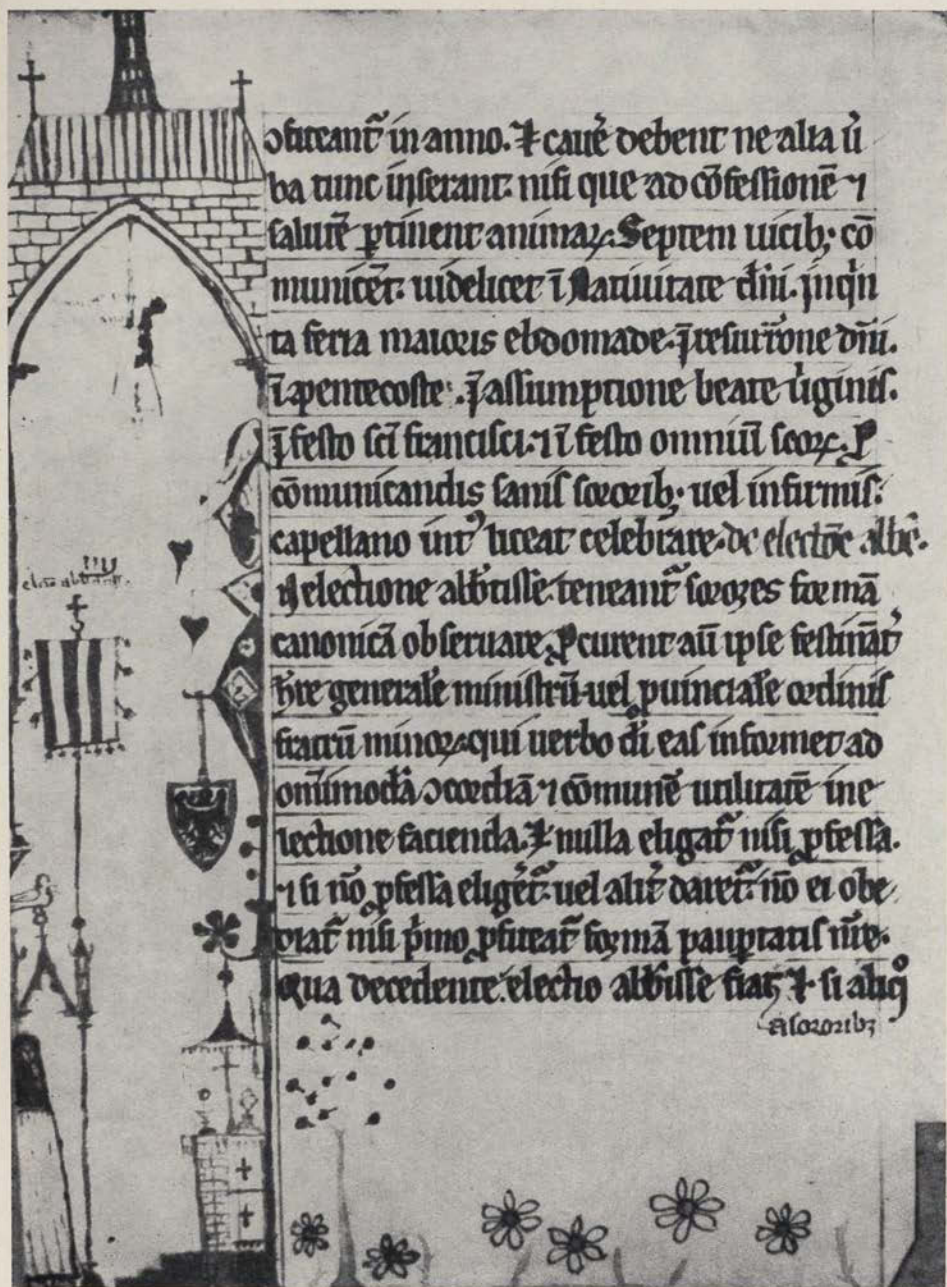 ↄfiteant᷑ in anno. Et caue᷑ debent ne alia u᷑
ba tunc inserant. nisi que ad cōfessionē ⁊
salutē ꝑtinent animaꝝ. Septem uicib; cō
municēt. uidelicet ī Natiuitate dn̄i. In qͥn
ta feria maioris ebdomade. Ī resurr̄one dn̄i.
ī pentecoste. Ī assumptione beate uͥginis.
Ī festo sc̄i francisci. ⁊ ī festo omniū sc̄oꝝ. P
cōmunicandis sanis sororib; uel infirmis.
capellano int᷑ liceat celebrare. de elect̄oe abb̄e.
In electione abb̄tisse teneant᷑ sorores formā
canonicā obseruare. Ꝓcurent aū ipse festināt᷑
h̄re generalē ministrū uel ꝓuincialē ordinis
fratrū minoꝝ. qui uerbo dī eas informet ad
om̄imodā ↄcordiā ⁊ cōmunē utilitatē in e
lectione facienda. Et nulla eligat᷑ nisi ꝓfessa.
⁊ si nō ꝓfessa eliget᷑. uel alit᷑ daret᷑. nō ei obe
diat᷑ nisi pͥmo ꝓfiteat᷑ formā pauꝑtatis nr̄e.
Qua decedente. electio abb̄isse fiat. Et si aliqͦ
a sororibꝫ